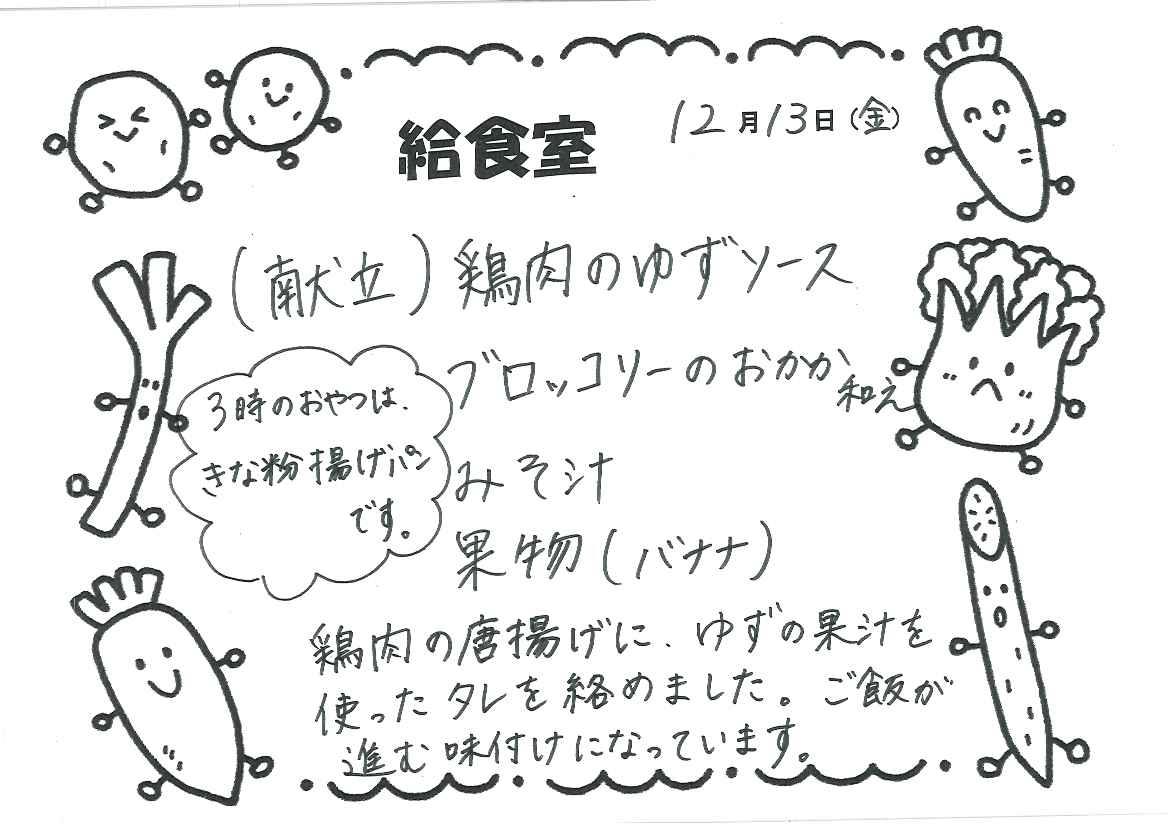 給食室
12月13日(金)
(献立)鶏肉のゆずソース
ブロッコリーのおかか和え
みそ汁
果物(バナナ)
3時のおやつは、
きな粉揚げパン
です。
鶏肉の唐揚げに、ゆずの果汁を
使ったタレを絡めました。ご飯が
進む味付けになっています。